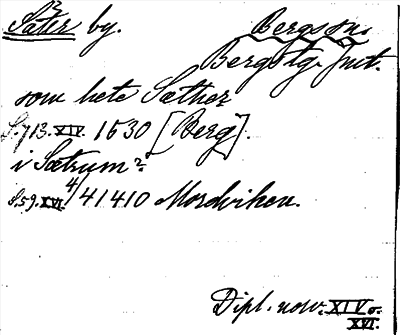 Säter by. Bergs sn.
Bergs tg. Jmt.
som hete Sæther
S. 713. XIV. 1530 [Berg].
i Sætrum?
S. 59. XVI. 4/4 1410 Mordviken.
Dipl. norv. XIV o.
XVI.